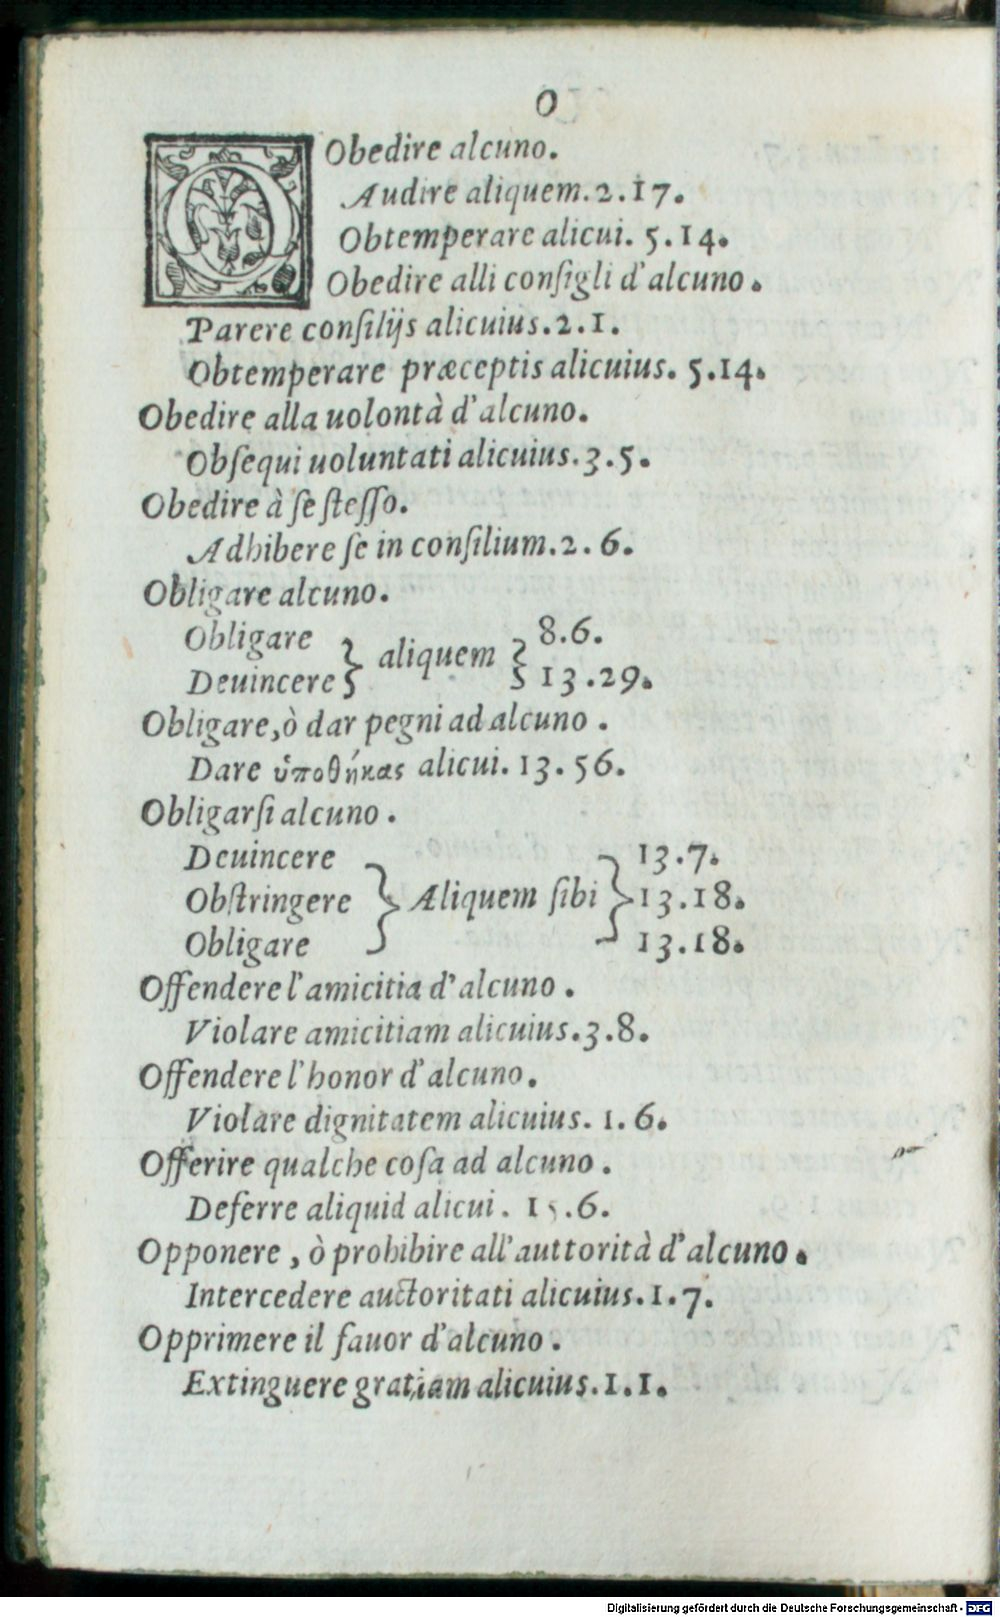 O
Obedire alcuno.
Audire aliquem.2.17.
Obtemperare alicui. 5.14.
Obedire alli conſigli d'alcuno.
Parere conſilijs alicuius.2.1.
Obtemperare præceptis alicuius. 5.14.
Obedire alla uolontà d'alcuno.
Obſequi uoluntati alicuius.3.5.
Obedire à ſe ſteſſo.
Adhibere ſe in conſilium.2.6.
Obligare alcuno.
Obligare } aliquem } 8.6.
Deuincere } 13.29.
Obligare, ò dar pegni ad alcuno.
Dare ὑποθήκας alicui. 13.56.
Obligarſi alcuno.
Deuincere 13.7.
Obſtringere } Aliquem ſibi } 13.18.
Obligare 13.18.
Offendere l'amicitia d'alcuno.
Violare amicitiam alicuius.3.8.
Offendere l'honor d'alcuno.
Violare dignitatem alicuius. 1.6.
Offerire qualche coſa ad alcuno.
Deferre aliquid alicui. 15.6.
Opponere, ò prohibire all'auttorità d'alcuno.
Intercedere auctoritati alicuius.1.7.
Opprimere il fauor d'alcuno.
Extinguere gratiam alicuius.1.1.
Digitalisierung gefördert durch die Deutsche Forschungsgemeinschaft - DFG